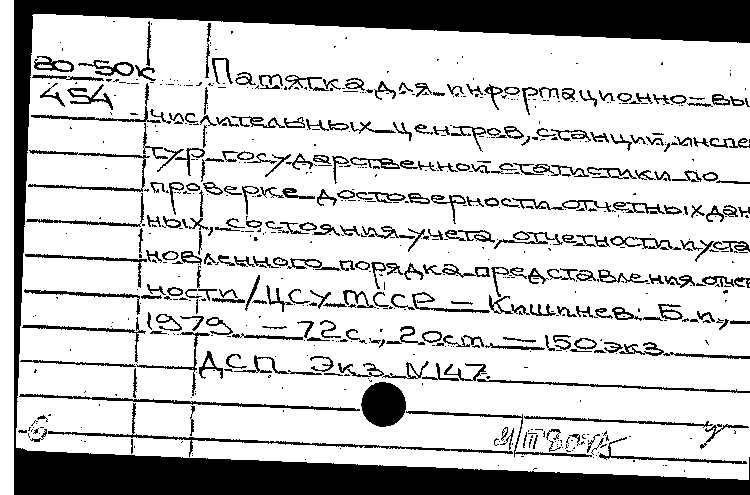 80-50к Памятка для информационно-вы
454 числительных центров, станций, инспе
тур государственной статистики по
проверке достоверности отчетных дан
ных, состояния учета, отчетности и уста
новленного порядка представления отчет
ности / ЦСУ МССР – Кишинев: Б.и.,
1979. – 72 с.; 20 cm. – 150 экз.
ДСП. Экз. N 147.
6